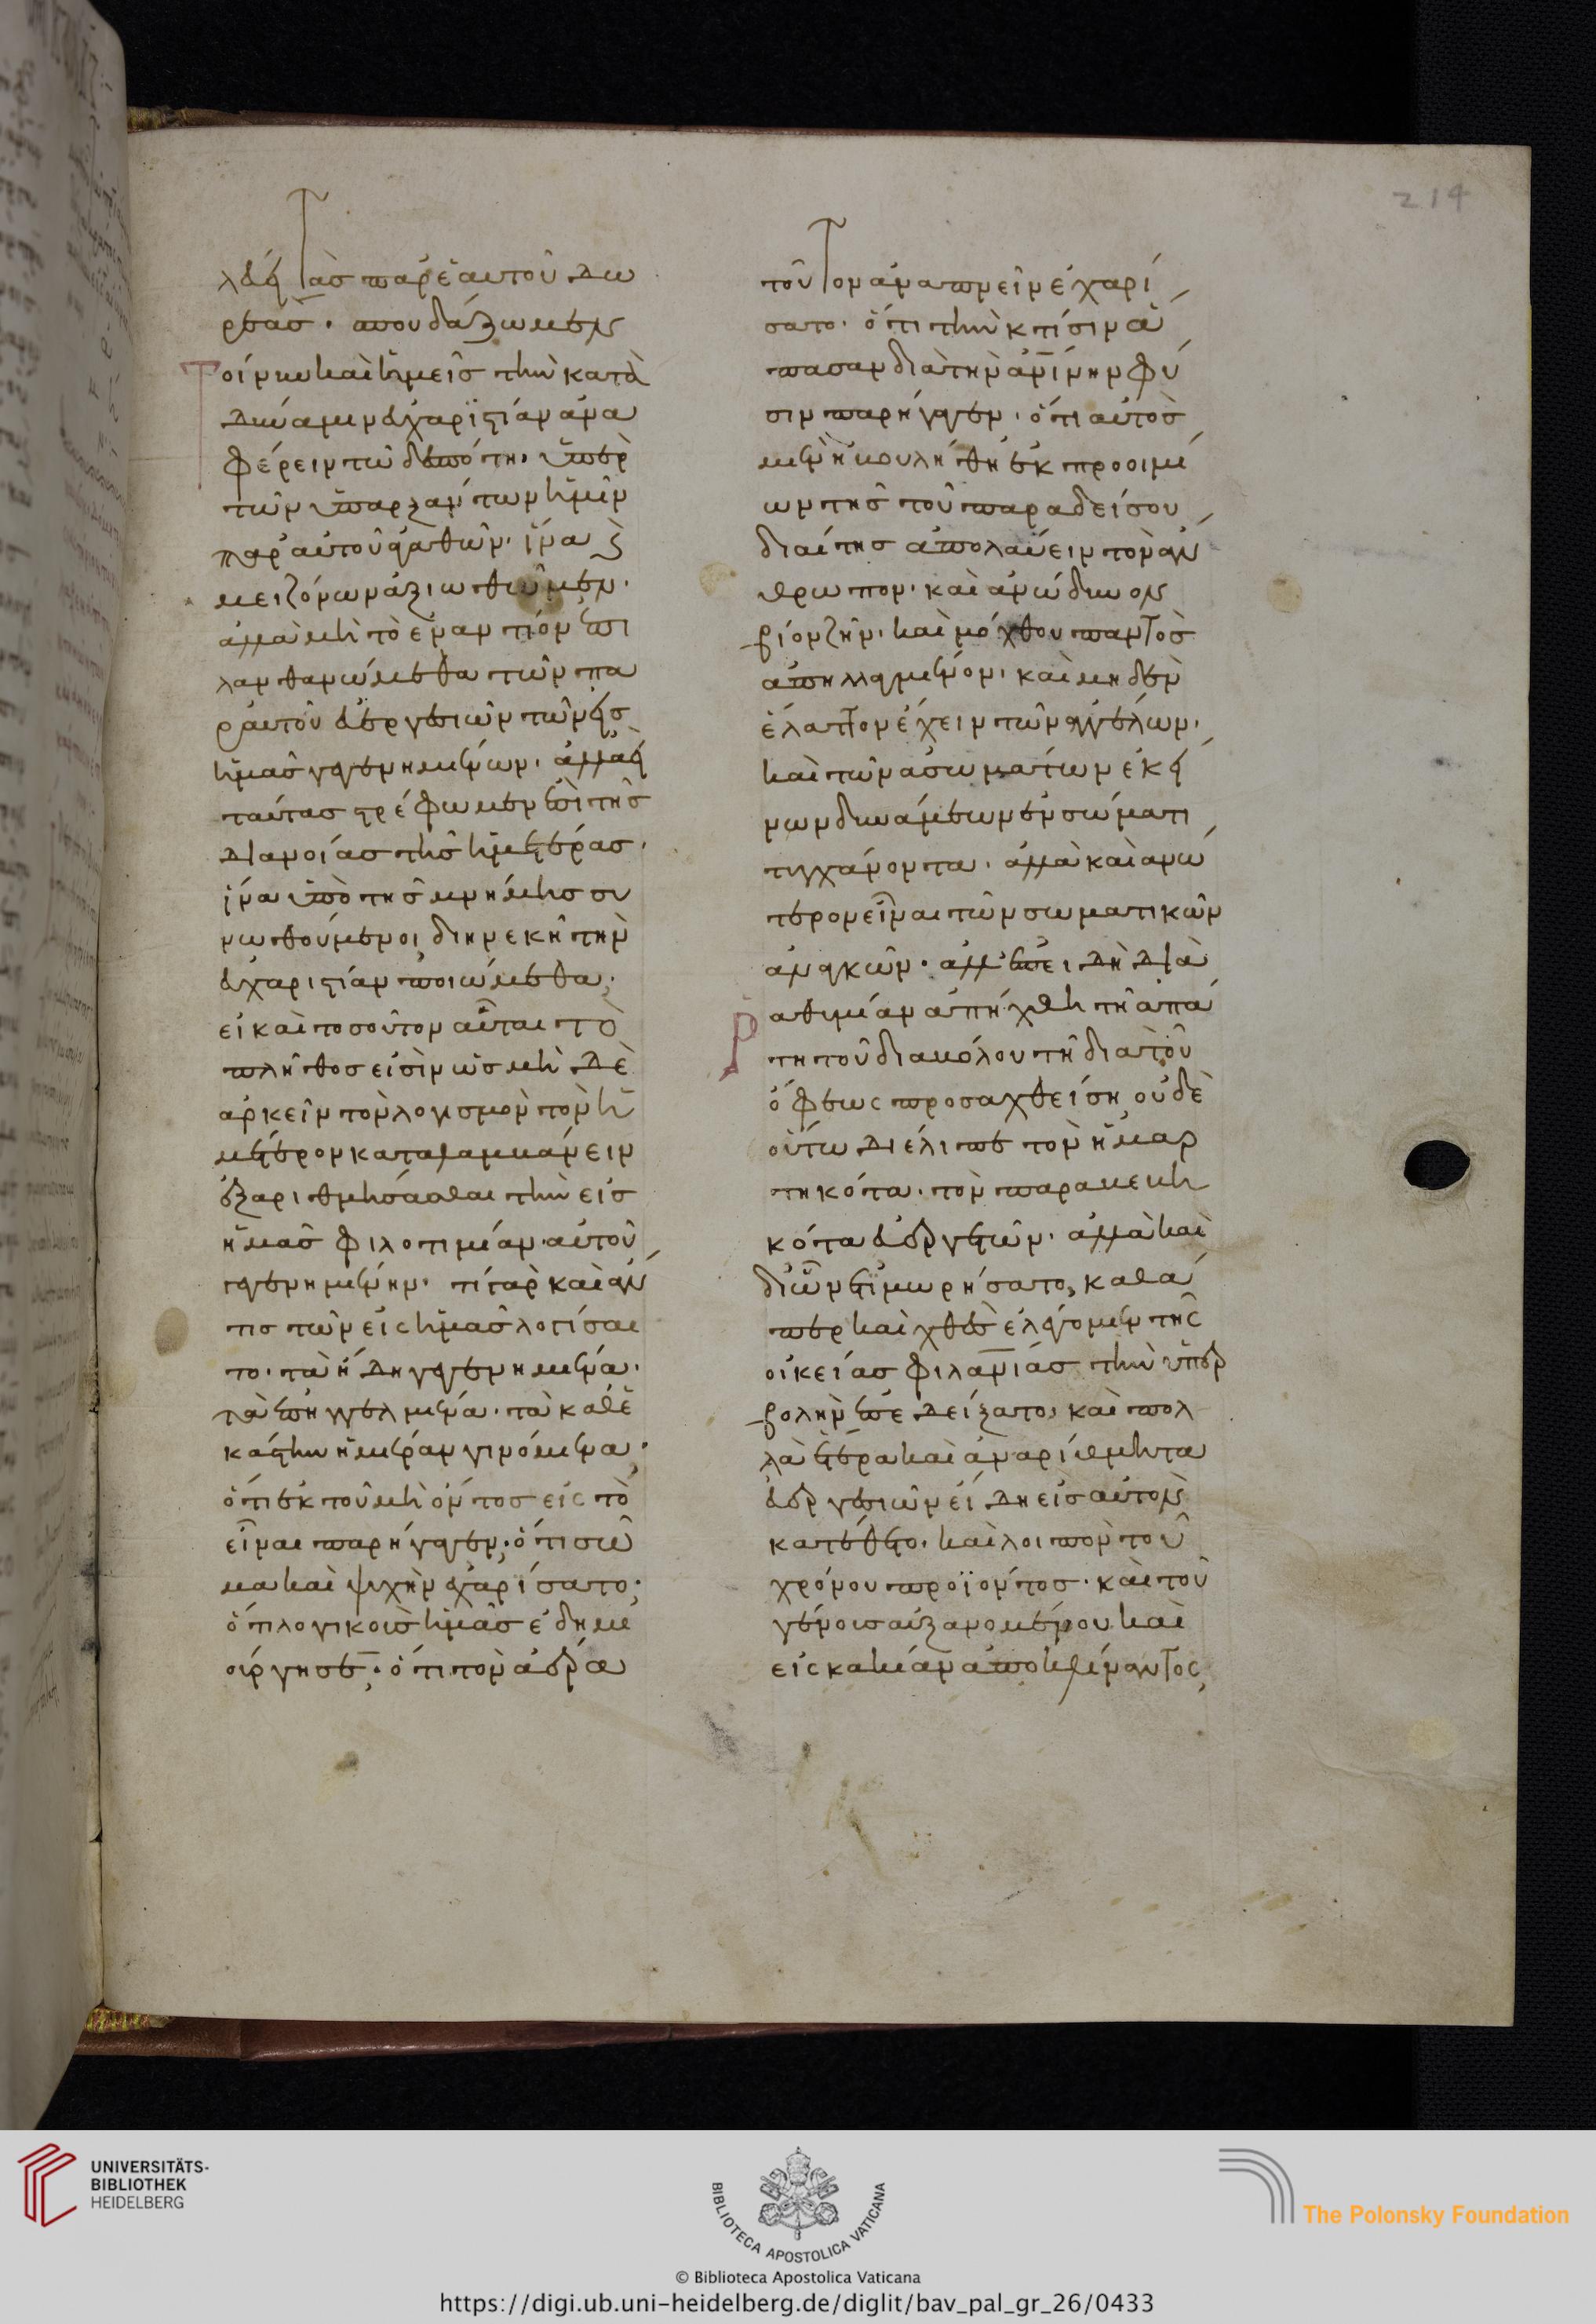 214
λὰς τὰς παρ' ἑαυτοῦ δω
ρεάς. σπουδάζωμεν
τοίνυν καὶ ἡμεῖς τὴν κατὰ
δύναμιν εὐχαριστίαν ἀνα
φέρειν τῷ δεσπότη. ὑπὲρ
τῶν ὑπαρξάντων ἡμῖν
παρ' αὐτοῦ ἀγαθῶν. ἵνα καὶ
μειζόνων ἀξιωθῶμεν.
ἀλλὰ μὴ τὸ ἐναντίον ἐπι
λανθανώμεθα τῶν πα
ρ' αὐτοῦ εὐεργεσιῶν τῶν εἰς
ἡμᾶς γεγενημένων. ἀλλ' ἀεὶ
ταύτας στρέφωμεν ἐπὶ τῆς
διανοίας τῆς ἡμετέρας.
ἵνα ὑπὸ τῆς μνήμης συ
νωθούμενοι διηνεκῆ τὴν
εὐχαριστίαν ποιώμεθα.
εἰ καὶ τοσοῦτον αὗται τὸ
πλῆθος εἰσὶν ὡς μὴ δὲ
ἀρκεῖν τὸν λογισμὸν τὸν ἡ
μέτερον καταλαμβάνειν
ἐξαριθμήσασθαι τὴν εἰς
ἡμᾶς φιλοτιμίαν αὐτοῦ
γεγενημένην. τί γὰρ καὶ ἄν
τις τῶν εἰς ἡμᾶς λογίσαι
το. τὰ ἤδη γεγενημένα.
τὰ ἐπηγγελμένα. τὰ καθ' ἑ
κάστην ἡμέραν γινόμενα.
ὅτι ἐκ τοῦ μὴ ὄντος εἰς τὸ
εἶναι παρήγαγεν. ὅτι σῶ
μα καὶ ψυχὴν ἐχαρίσατο.
ὅτι λογικοὺς ἡμᾶς ἐδημι
ούργησεν. ὅτι τὸν ἀέρα
τοῦτον ἀναπνεῖν ἐχαρί
σατο. ὅτι τὴν κτίσιν ἅ
πασαν διὰ τὴν ἀνίνην φύ
σιν παρήγαγεν. ὅτι αὐτὸς
μὲν ἠβουλήθη ἐκ προοιμί
ων τῆς τοῦ παραδείσου
διαίτης ἀπολαύειν τὸν ἄν
θρωπον. καὶ ἀνώδυνον
βίον ζῆν. καὶ μόχθου παντὸς
ἀπηλλαγμένον. καὶ μηδὲν
ἔλαττον ἔχειν τῶν ἀγγέλων.
καὶ τῶν ἀσωμάτων ἐκεί
νων δυνάμεων ἐν σώματι
τυγχάνοντα. ἀλλὰ καὶ ἀνώ
τερον εἶναι τῶν σωματικῶν
ἀναγκῶν. ἀλλ' ἐπειδὴ διὰ
ῥαθυμίαν ἀπήχθη τῆ ἀπά
τη τοῦ διαβόλου τῆ διὰ τοῦ
ὄφεως προσαχθείση οὐδὲ
οὕτω διέλιπε τὸν ἡμαρ
τηκότα. τὸν παραβεβη
κότα εὐεργετῶν. ἀλλὰ καὶ
δι' ὧν ἐτιμωρήσατο, καθά
περ καὶ χθὲς ἐλέγομεν τῆς
οἰκείας φιλανίας τὴν ὑπερ
βολὴν ἐπεδείξατο, καὶ πολ
λὰ ἕτερα καὶ ἀναρίθμητα
εὐεργεσιῶν εἴδη εἰς αὐτὸν
κατέθετο. καὶ λοιπὸν τοῦ
χρόνου προϊόντος. καὶ τοῦ
γένους αὐξανομένου καὶ
εἰς κακίαν ἀποκλίναντος,
UNIVERSITÄTS-
BIBLIOTHEK
HEIDELBERG
BIBLIOTECA APOSTOLICA VATICANA
The Polonsky Foundation
© Biblioteca Apostolica Vaticana
https://digi.ub.uni-heidelberg.de/diglit/bav_pal_gr_26/0433